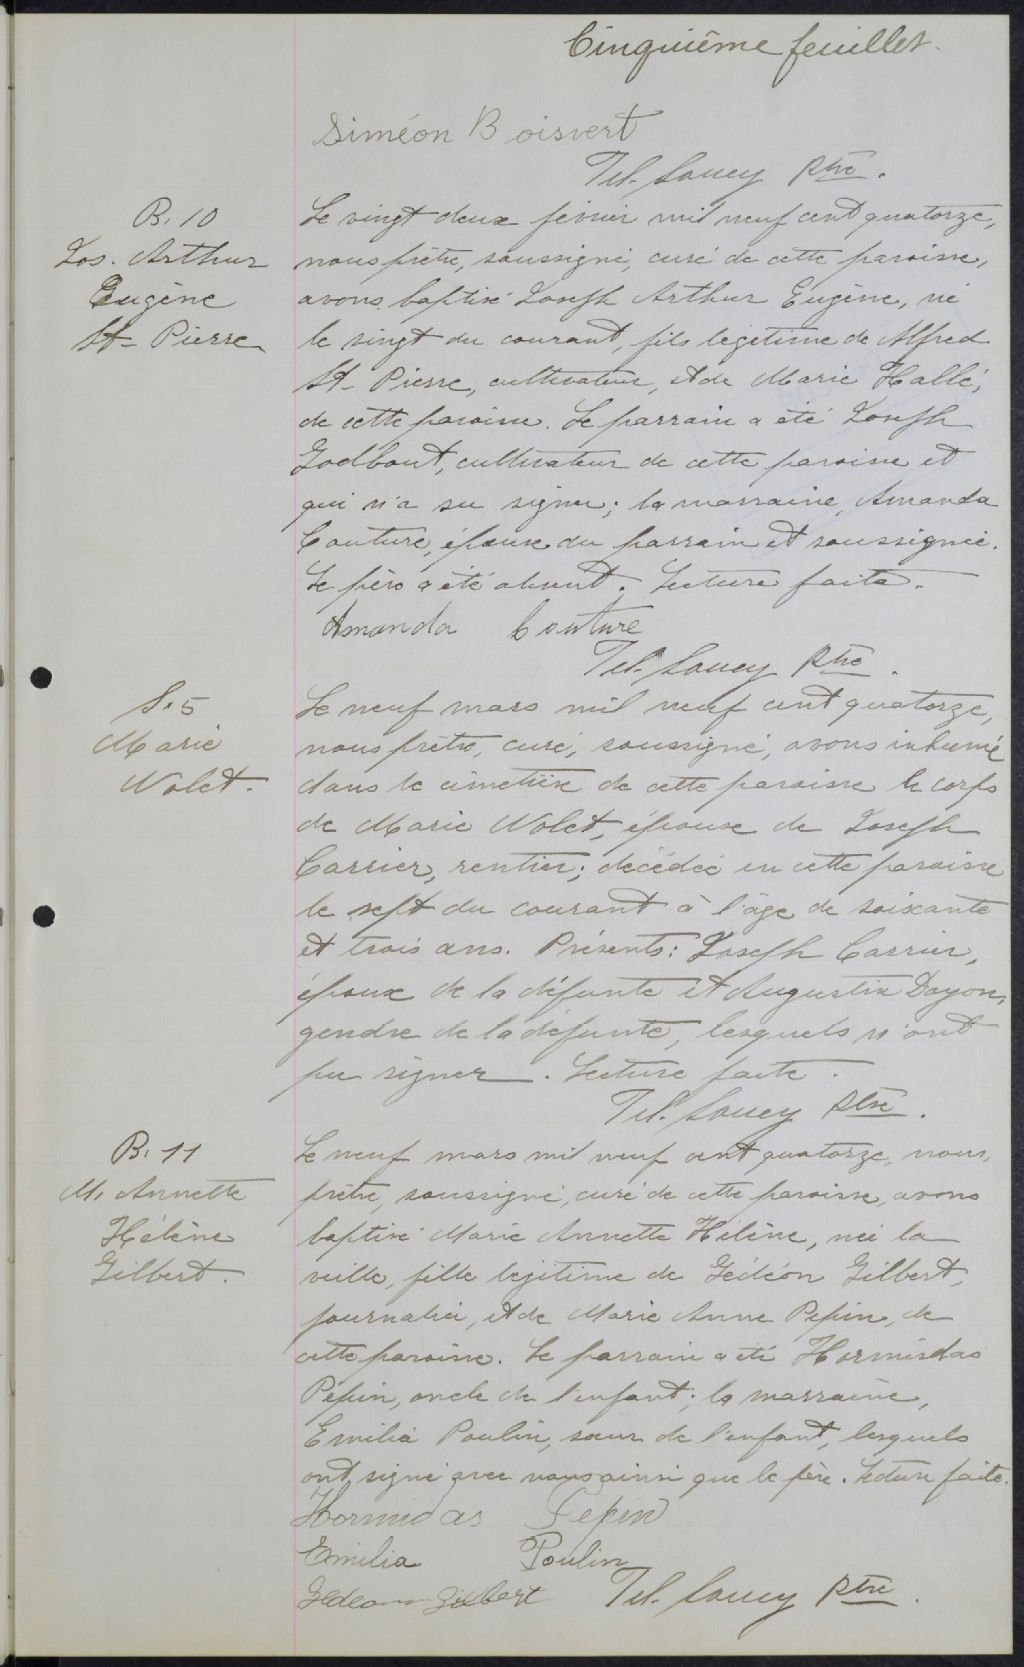 Cinquième feuillet.
Siméon Boisvert
Tél. Soucy Ptre.
B. 10
Jos. Arthur
Eugène
St-Pierre
Le vingt deux février mil neuf cent quatorze,
nous prêtre, soussigné, curé de cette paroisse,
avons baptisé Joseph Arthur Eugène, né
le vingt du courant, fils légitime de Alfred
St-Pierre, cultivateur, et de Marie Hallé,
de cette paroisse. Le parrain a été Joseph
Godbout, cultivateur de cette paroisse et
qui n'a su signer; la marraine, Amanda
Couture, épouse du parrain et soussignée.
Le père a été absent. Lecture faite.
Amanda Couture
Tél. Soucy Ptre.
S. 5
Marie
Nolet.
Le neuf mars mil neuf cent quatorze,
nous prêtre, curé, soussigné, avons inhumé
dans le cimetière de cette paroisse le corps
de Marie Nolet, épouse de Joseph
Carrier, rentier; décédée en cette paroisse
le sept du courant à l'âge de soixante
et trois ans. Présents: Joseph Carrier,
époux de la défunte et Augustin Doyon,
gendre de la défunte, lesquels n'ont
pu signer. Lecture faite.
Tél. Soucy Ptre.
B. 11
M. Annette
Hélène
Gilbert.
Le neuf mars mil neuf cent quatorze, nous,
prêtre, soussigné, curé de cette paroisse, avons
baptisé Marie Annette Hélène, née la
veille, fille légitime de Gédéon Gilbert,
journalier, et de Marie Anne Pepin, de
cette paroisse. Le parrain a été Hormisdas
Pepin, oncle de l'enfant; la marraine,
Emilia Poulin, sœur de l'enfant, lesquels
ont signé avec nous ainsi que le père. Lecture faite.
Hormidas Pepin
Emilia Poulin
Gedeon Gilbert Tél. Soucy Ptre.